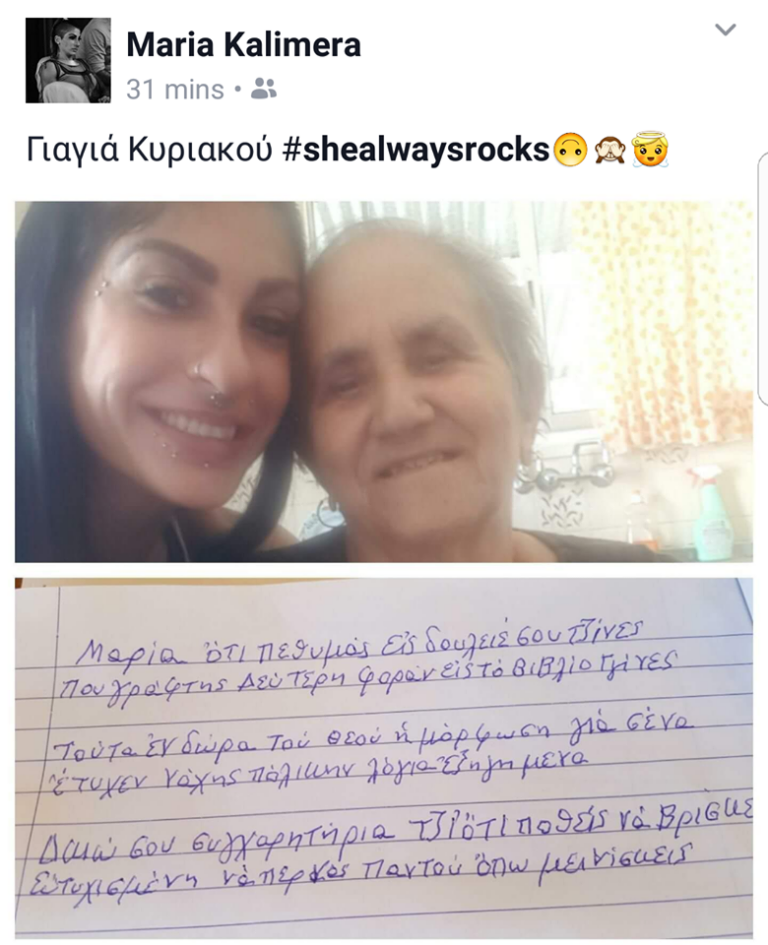 Maria Kalimera
31 mins
Γιαγιά Κυριακού #shealwaysrocks🙃🙈😇
Μαρία ὅτι πεθυμᾶς εἰς δουλειές σου τζίνες
που γράφτης Δεύτερη φοράν εἰς τὸ βιβλίο γίνες
τούτα ἐν δώρα τοῦ θεοῦ ἡ μόρφωση γιὰ σένα
ἔτυχεν νάχης λόγια ἐξηγημένα
Δακώ σου συγχαρητήρια τζὶ ὅτι ποθεῖς νὰ βρίσκε
εὐτυχισμένη νὰ περνᾶς παντού ὅπω μεινίσκεις